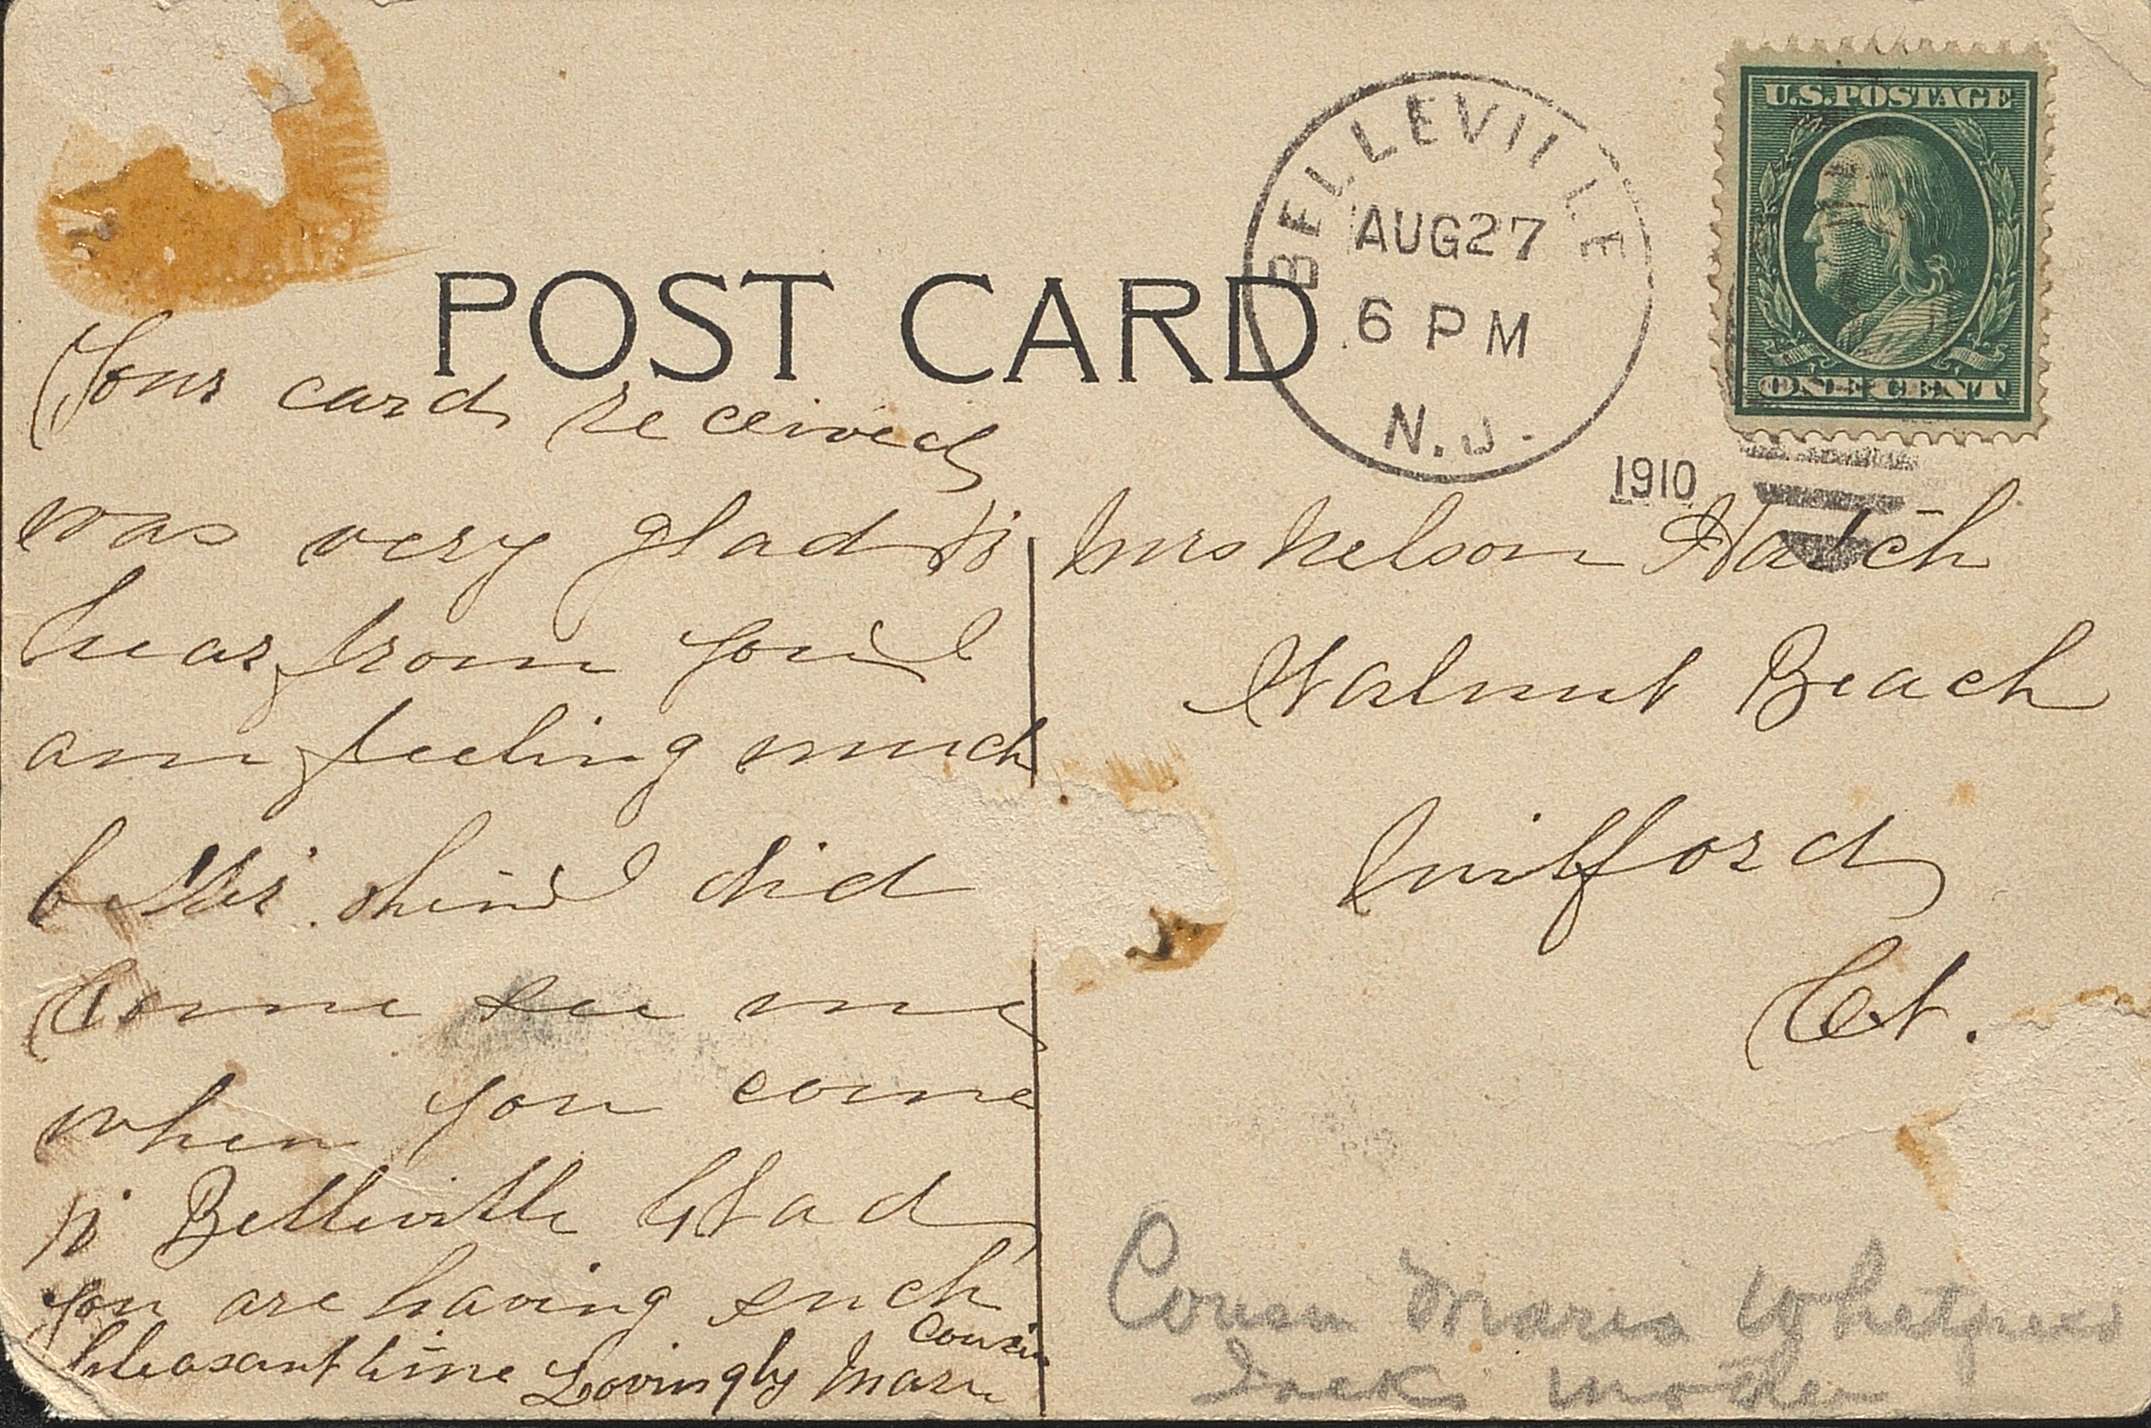 U.S. POSTAGE
ONE CENT
BELLEVILLE
AUG 27
6 PM
N.J.
1910
POST CARD
Your card received
was very glad to
hear from you I
am feeling much
better then I did
Come see me
when you come
to Belleville Glad
you are having such
pleasant time Lovingly Cousin Maria
Mrs Nelson Hatch
Walnut Beach
Milford
Ct.
Cousin Maria
Jack's mother